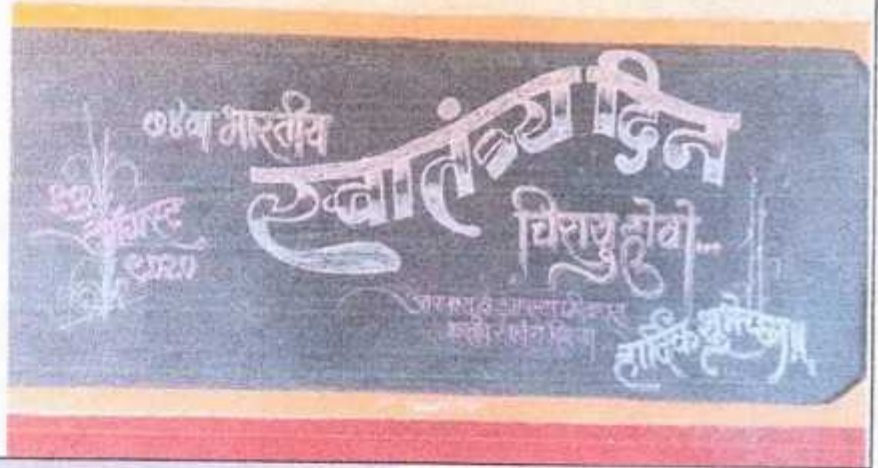 ७४वा भारतीय
स्वातंत्र्य दिन
चिरायु होवो...
१५
ऑगस्ट
२०२०
हार्दिक शुभेच्छा!!